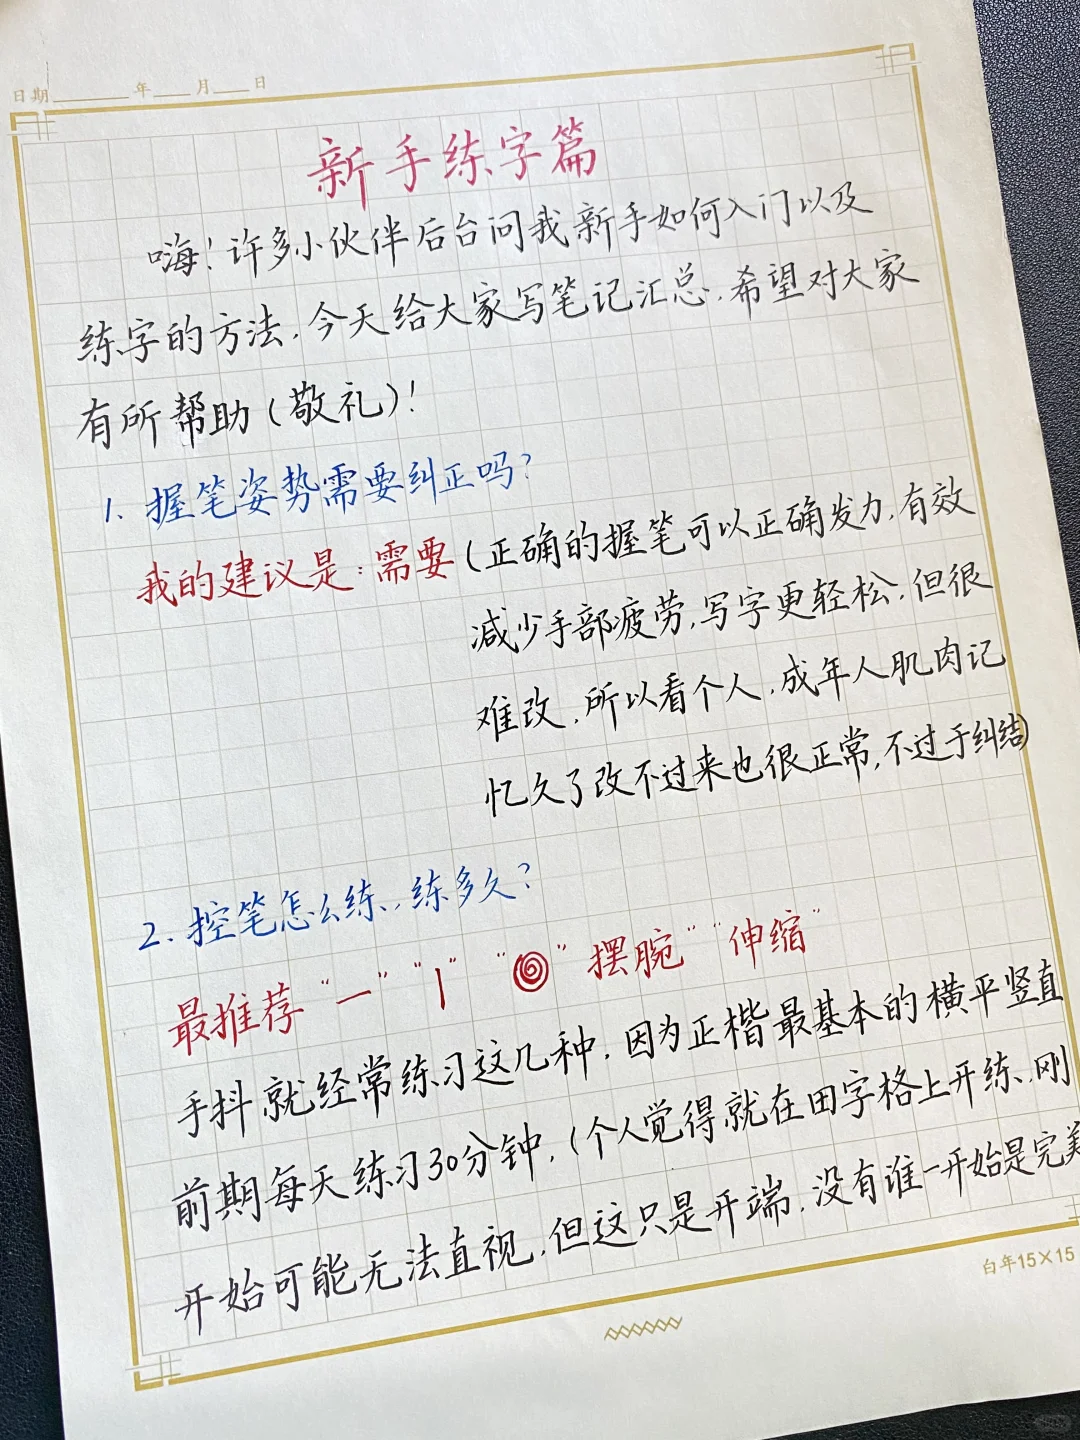 日期 年 月 日
新手练字篇
嗨！许多小伙伴后台问我新手如何入门以及
练字的方法，今天给大家写笔记汇总，希望对大家
有所帮助（敬礼）！
1、握笔姿势需要纠正吗？
我的建议是：需要（正确的握笔可以正确发力，有效
减少手部疲劳，写字更轻松，但很
难改，所以看个人，成年人肌肉记
忆久了改不过来也很正常，不过于纠结）
2、控笔怎么练，练多久？
最推荐“一”“丨”“ ”摆腕”“伸缩”
手抖就经常练习这几种，因为正楷最基本的横平竖直
前期每天练习30分钟，（个人觉得就在田字格上开练，刚
开始可能无法直视，但这只是开端，没有谁一开始是完美
白年15×15